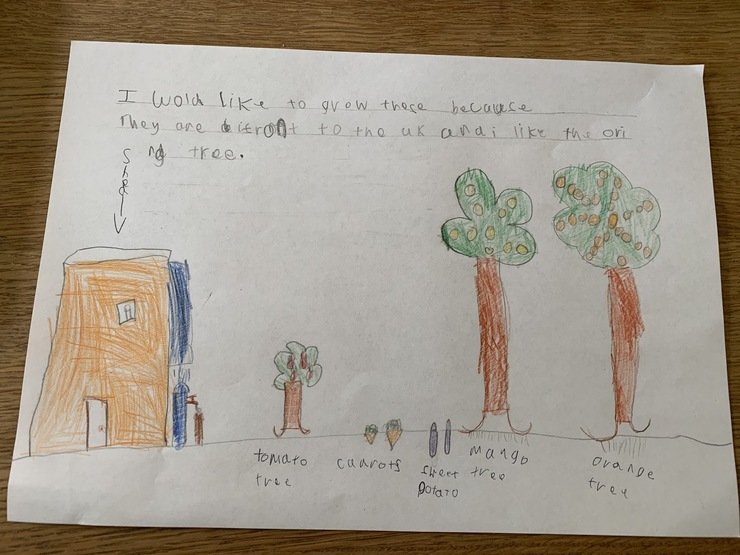 I wold like to grow these because
They are difront to the uk and i like the ori
ng tree.
Shed
tomato
tree
carrots
sweet
potato
mango
tree
orange
tree